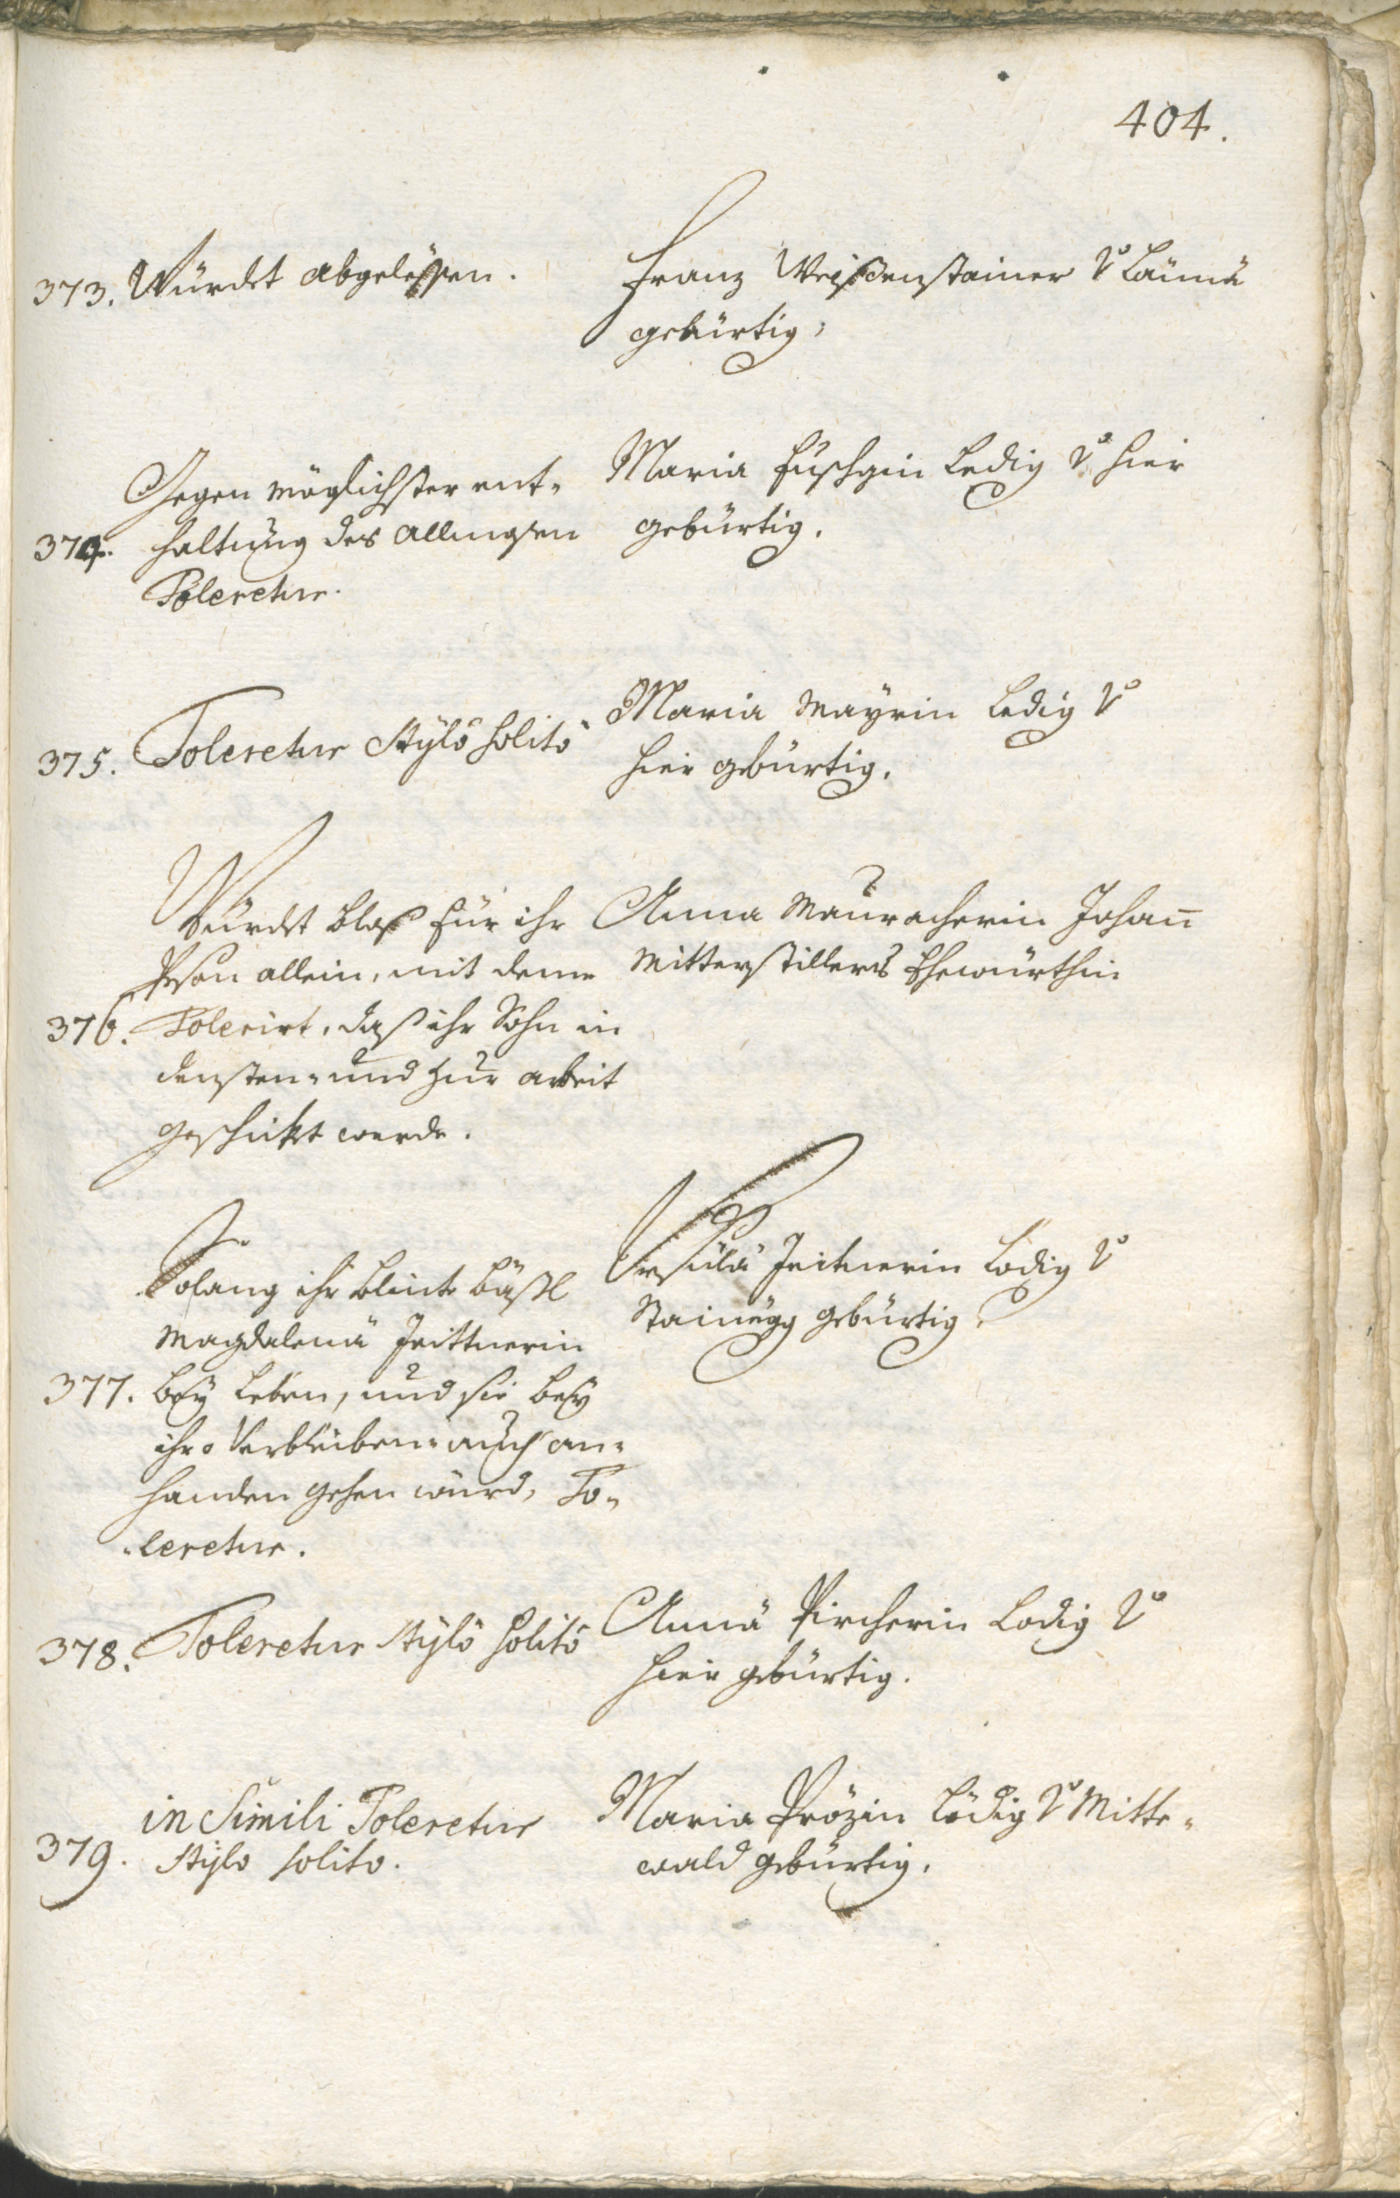 404.
373. Würdet abgelessen.
Franz Weissenstainer v Laimä
gebürtig;
Gegen möglichster ent-
374. haltung des allmosen
Toleretur.
Maria Fuschgin ledig v hier
gebürtig.
375. Toleretur Stylo solito
Maria Mayrin ledig v
hier gebürtig.
Würdet blos für ihr
Person allein, mit deme
376. Tolerirt, daß ihr Sohn in
diensten- und zur arbeit
geschickt werde.
Anna Mauracherin Johann
Mitterstillers Ehewürthin
Solang ihr blinte bäßl
Magdalena Zeittnerin
377. bey Leben, und sie bey
ihr verbleiben- auch an-
handen gehen würd, To-
leretur.
Ursula Zeitnerin Ledig v
Stainegg gebürtig.
378. Toleretur Stylo solito
Anna Pircherin Ledig v
hier gebürtig.
in Simili Toleretur
379. Stylo solito.
Maria Prözin Ledig v Mitte-
wald gebürtig.